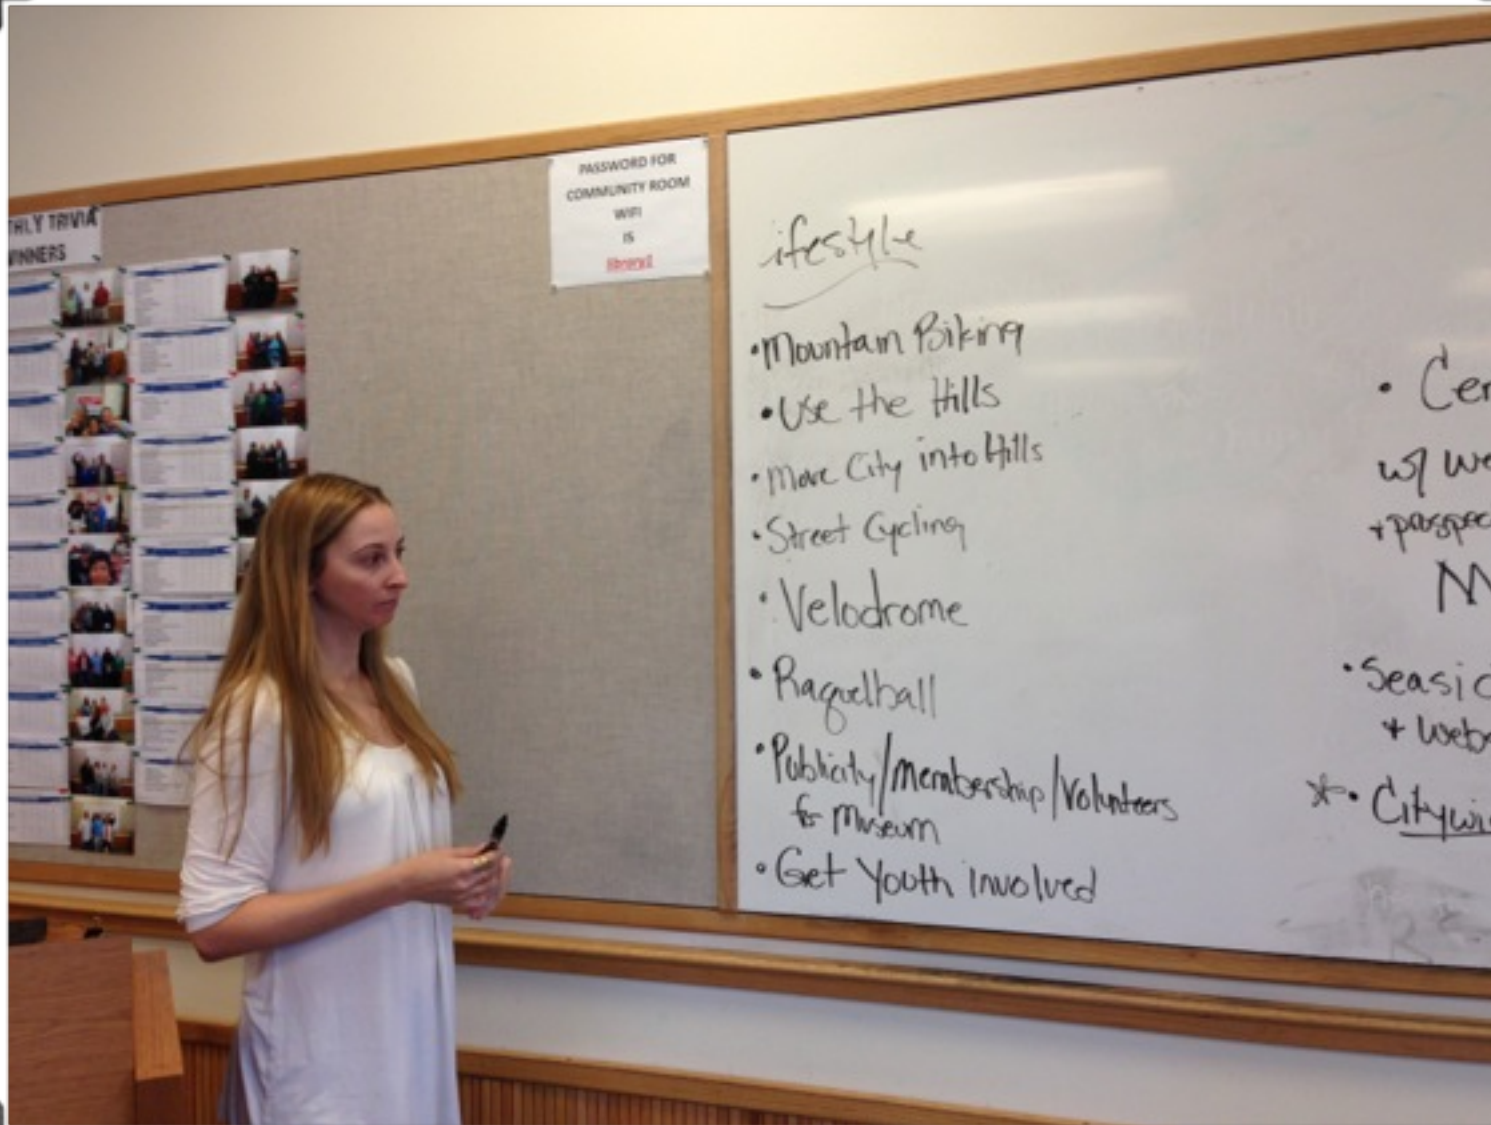 THLY TRIVIA
INNERS
PASSWORD FOR
COMMUNITY ROOM
WIFI
IS
ifestyle
• Mountain Biking
• Use the Hills
• More City into Hills
• Street Cycling
• Velodrome
• Raquelball
• Publicity/membership/Volunteers
for Museum
• Get Youth involved
• Cer
w/ we
+ prospec
M
• Seasid
+ webs
* • Citywi